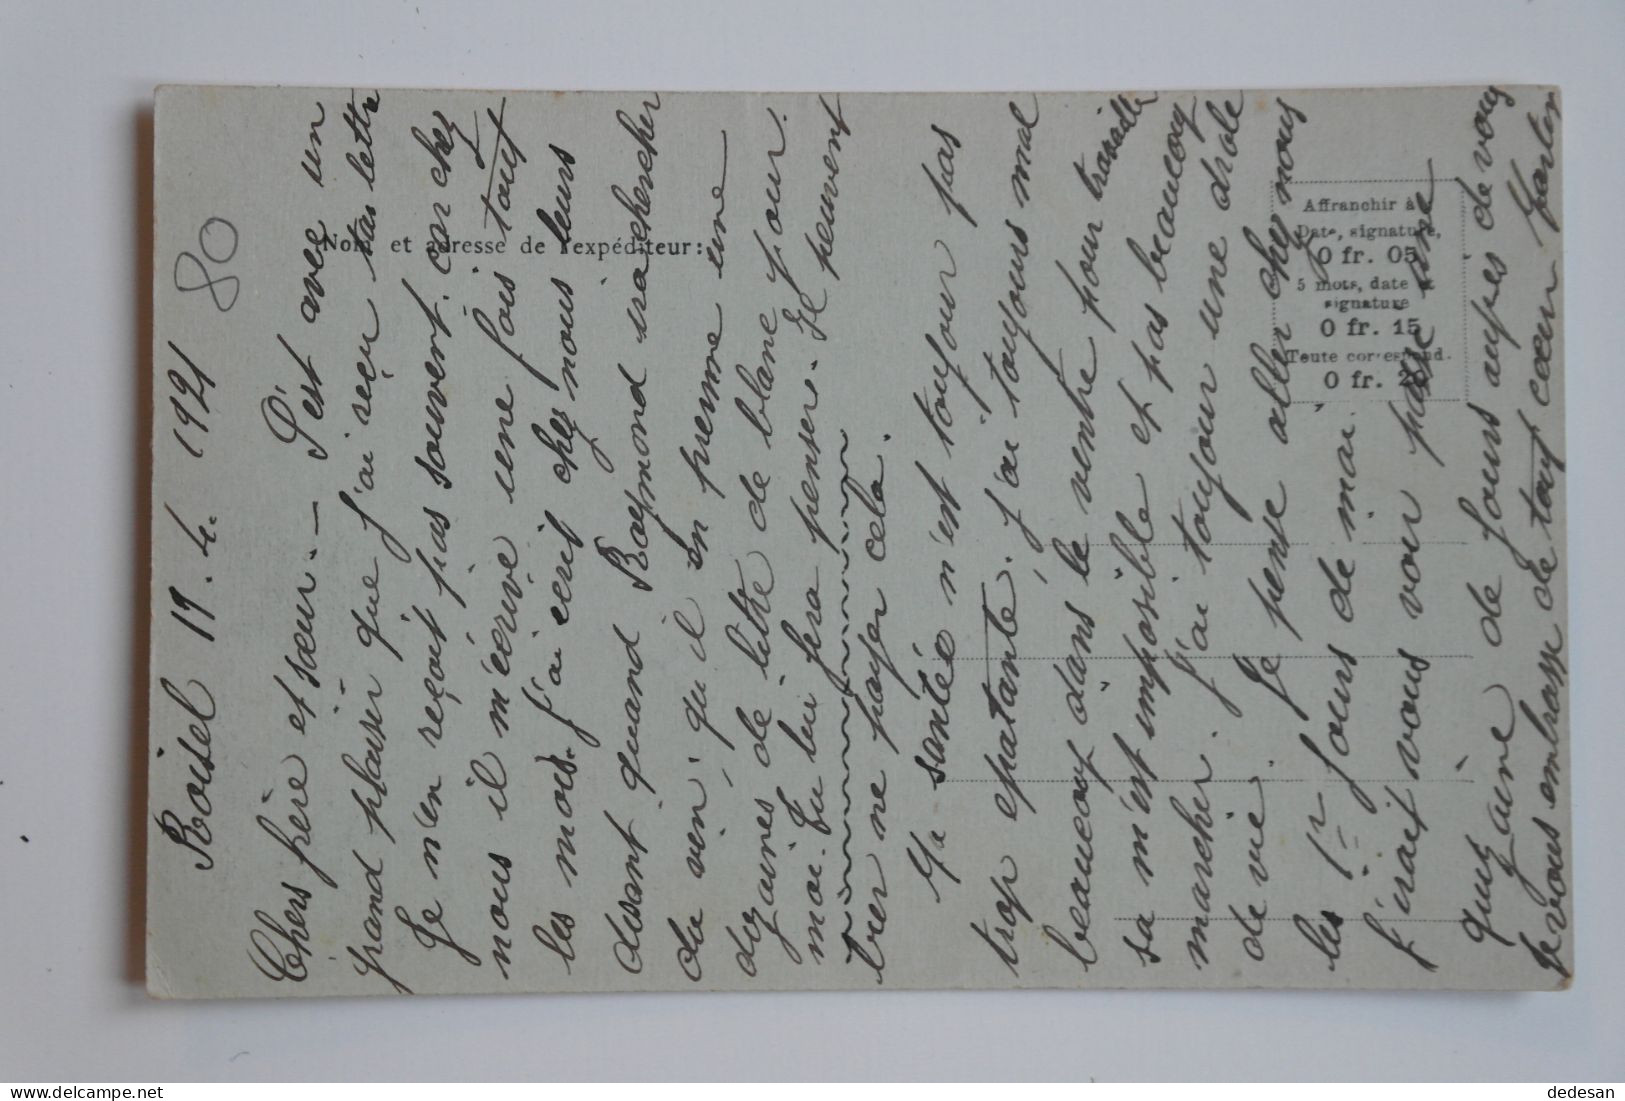 Roisel 11. 4. 1921
80
Chers frère et sœur. — C'est avec un
grand plaisir que j'ai reçu ta lettre
Je n'en reçoit pas souvent. car chez
nous il m'écrive une fois tout
les mois. J'ai écrit chez nous leurs
disant quand Raymond ira chercher
du vin, qu'il en prenne une
dizaines de litre de blanc pour
moi. Tu lui fera penser. Il peuvent
bien ne payer cela.
Ma santée n'est toujour pas
trop epatante. J'ai toujours mal
beaucoup dans le ventre pour travaille
sa m'est imposible et pas beaucoup
marcher. J'ai toujour une drole
de vie. Je pense aller chez nous
les 1er jours de mai.
J'irait vous voir passe une
quinzaine de jours aupres de vous
Je vous embrasse de tout cœur
Nom et adresse de l'expéditeur:
Affranchir à
Date, signature,
0 fr. 05
5 mots, date et
signature
0 fr. 15
Toute correspond.
0 fr. 2
dedesan